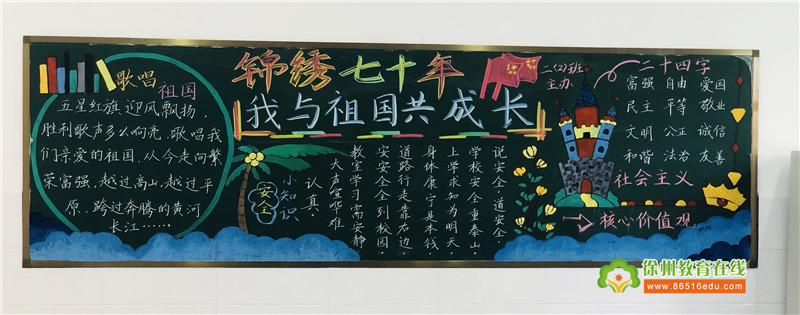 歌唱祖国
五星红旗迎风飘扬,
胜利歌声多么响亮,歌唱我
们亲爱的祖国,从今走向繁
荣富强,越过高山,越过平
原,跨过奔腾的黄河
长江……
锦绣七十年
我与祖国共成长
二(2)班
主办
安全
小知识
说安全,道安全,
学校安全重泰山,
上学求知为明天,
身体康宁是本钱,
道路行走靠右边,
安安全全到校园,
教室学习需安静,
大声喧哗难
认真,
二十四字
富强 自由 爱国
民主 平等 敬业
文明 公正 诚信
和谐 法治 友善
社会主义
核心价值观
徐州教育在线
www.86516edu.com